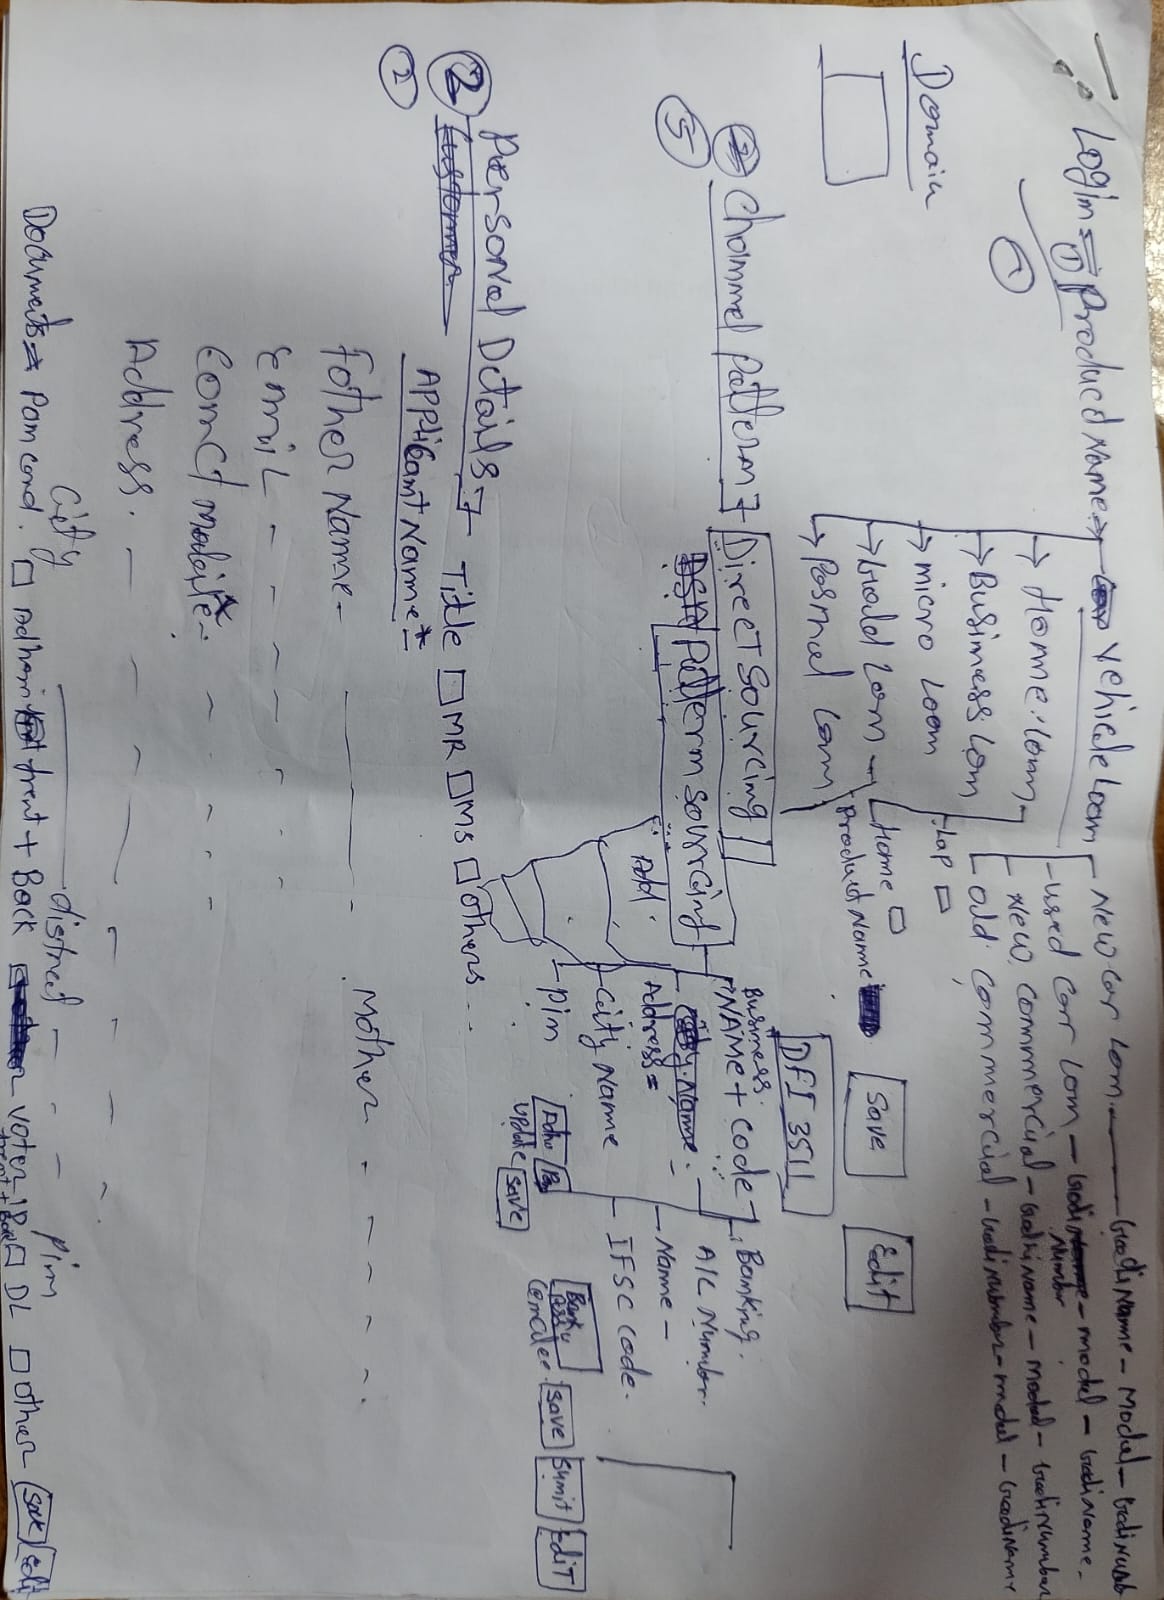 Login = ① Produced Name → Vehicle Loom
New Car Lom — Gadi Name - Model - Gadi Numb
Used Car Lom - Gadi Number - model - Gadi Name -
New Commercial - Gadi Name - Model - Gadi Number
old Commercial - Gadi Number - Model - Gadi Name
①
→ Home Lom -
→ Business Lom
→ micro Loom
→ Gold Lom
→ Posnel Lom
Lap □
Home □
Product Name
Save
Edit
Domain
⑤ Channel Pattern 7
Direct Sourcing
Patterm Sourcing
Add.
DFI 3511
Business
NAMe + Code
Address =
City Name
Pim
Banking
A/C Number
- Name -
- IFSC Code -
Update
Save
Save
Sumit
EdiT
Personal Details 7 Title □ MR □ MS □ others
②
Applicamt Name *
Fother Name - Mother
Emil
Comct Mobile *
Address. -
City distred Pim
Documents → Pam Card. □ Adhar frent + Back Voter ID frent + Back □ DL □ other Save Edit